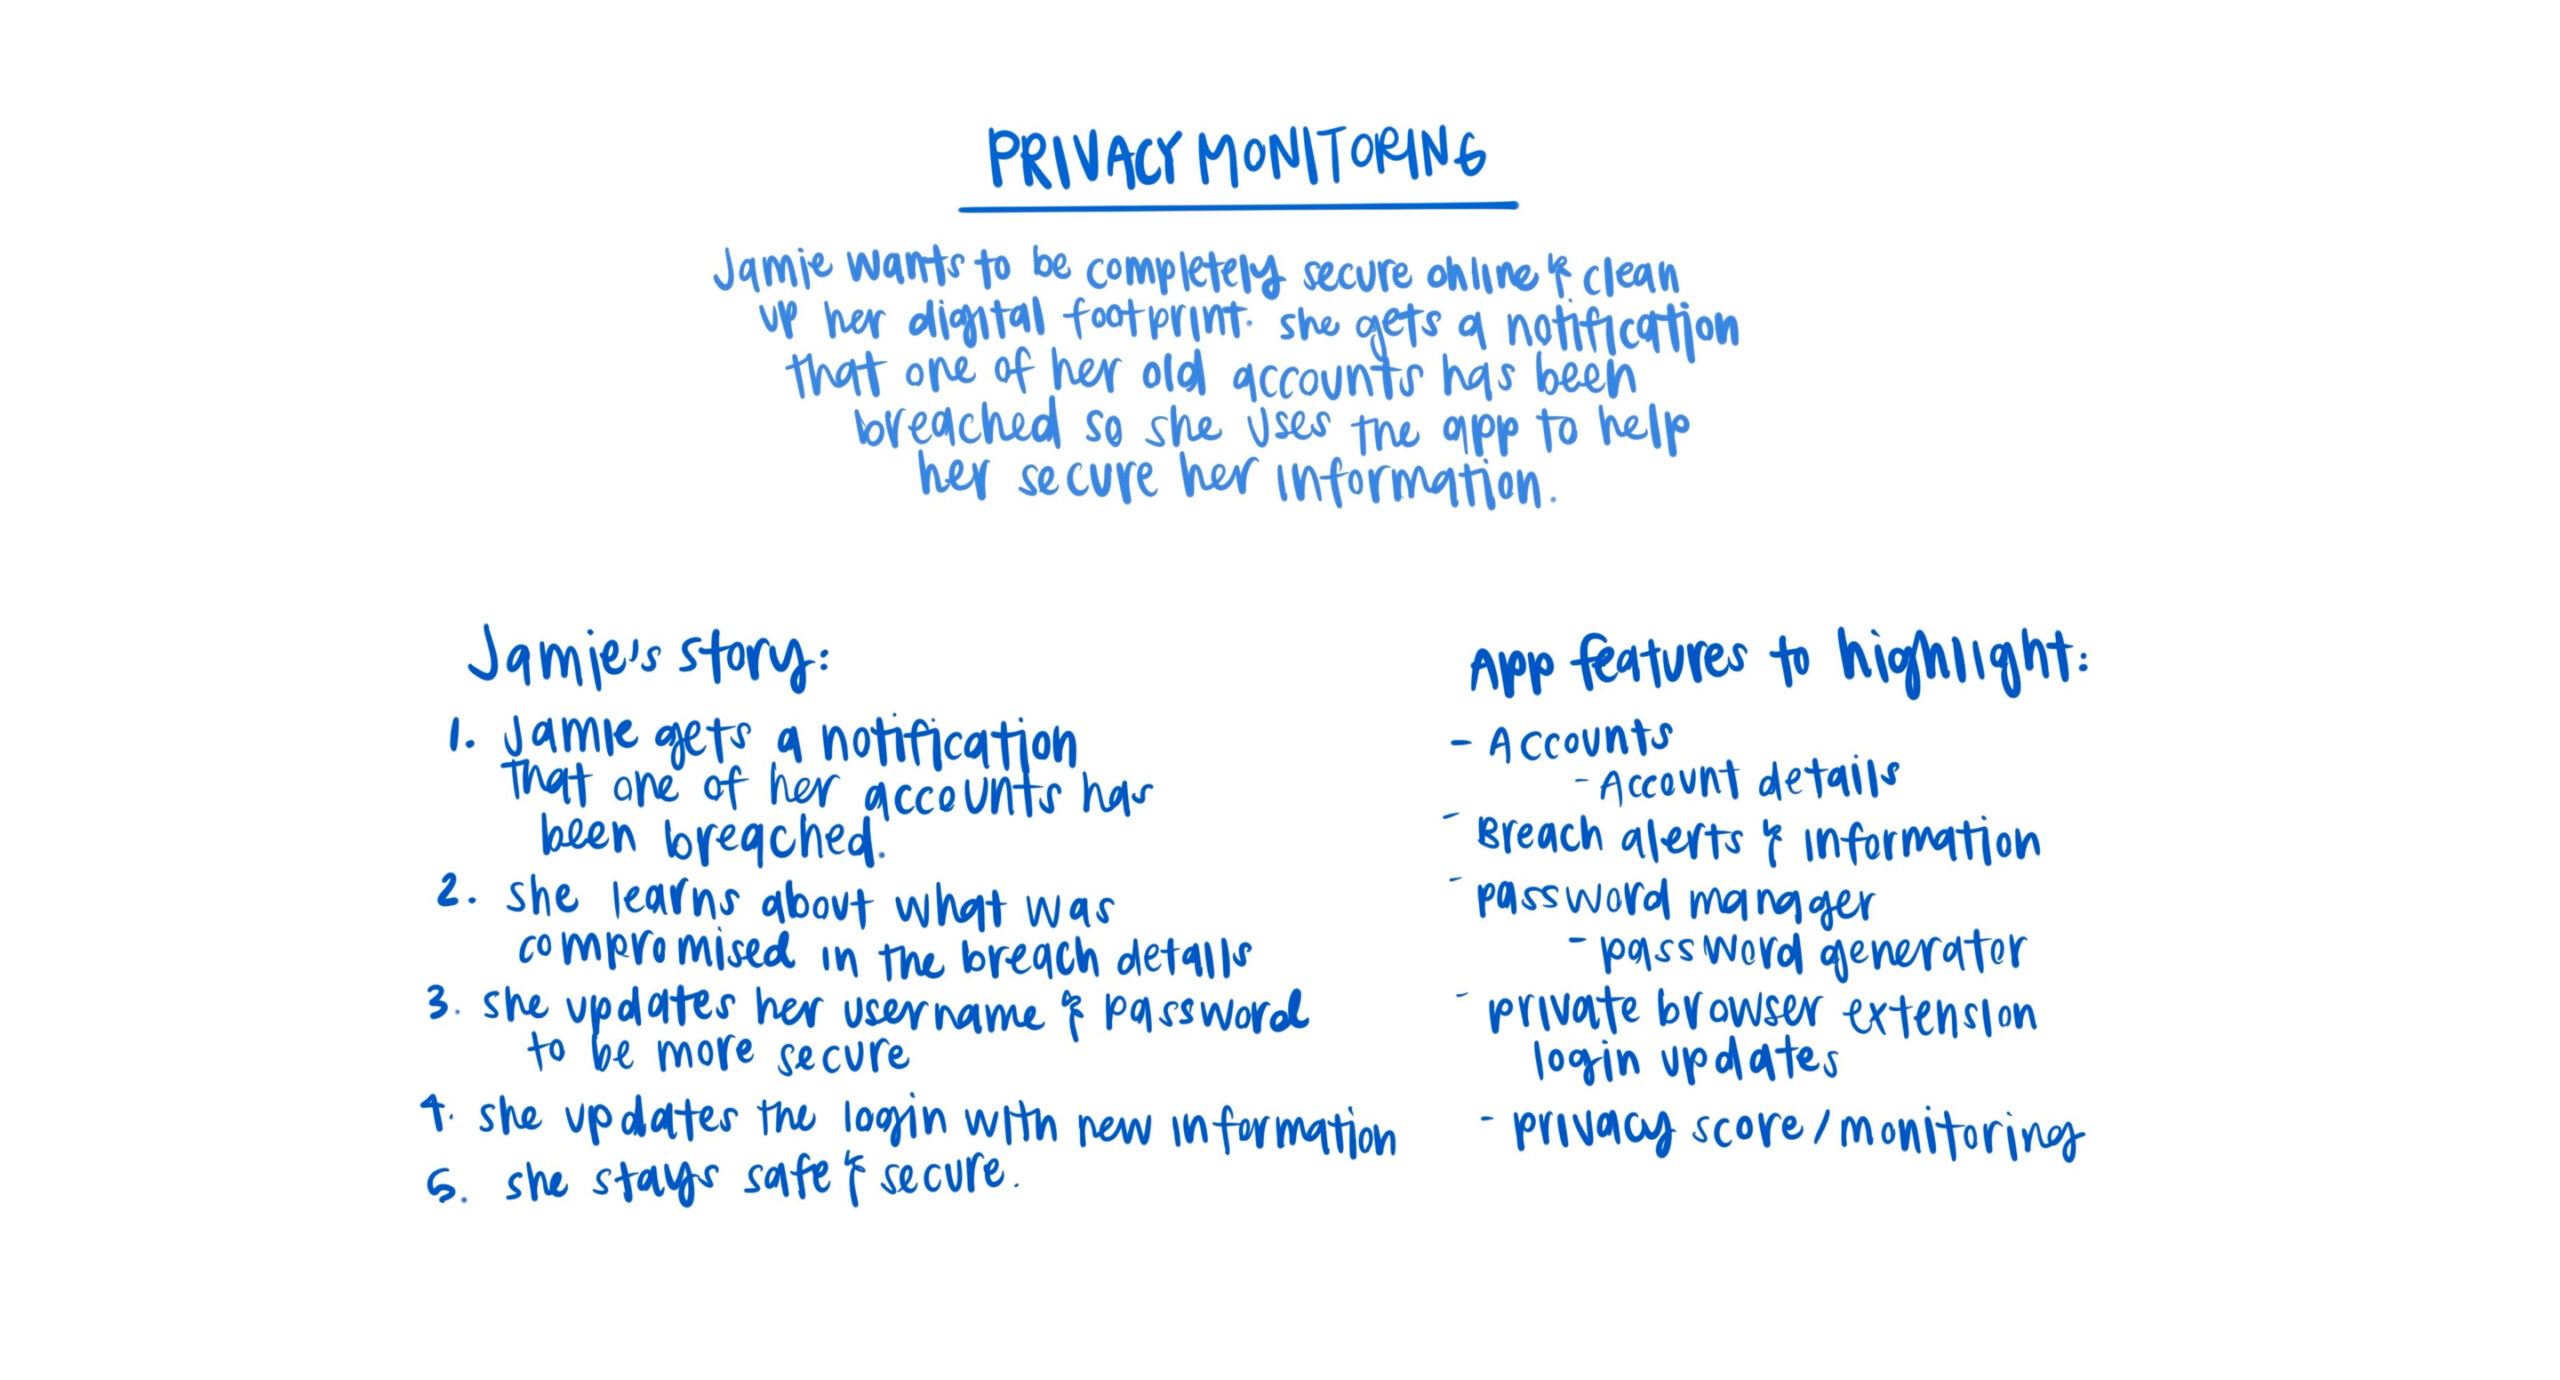 PRIVACY MONITORING
Jamie wants to be completely secure online & clean
up her digital footprint. she gets a notification
that one of her old accounts has been
breached so she uses the app to help
her secure her information.
Jamie's story:
1. Jamie gets a notification
that one of her accounts has
been breached.
2. she learns about what was
compromised in the breach details
3. she updates her username & password
to be more secure
4. she updates the login with new information
5. she stays safe & secure.
App features to highlight:
- Accounts
- Account details
- Breach alerts & information
- password manager
- password generator
- private browser extension
login updates
- privacy score/monitoring